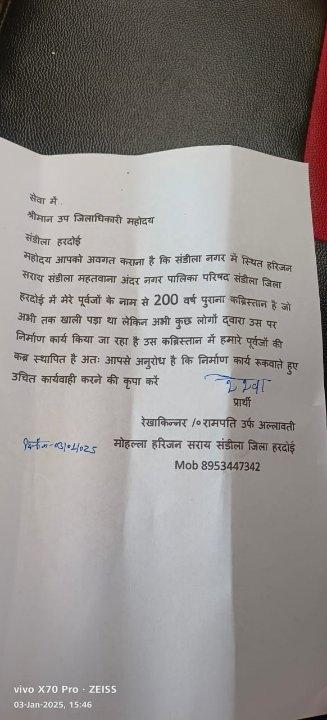 सेवा में
श्रीमान उप जिलाधिकारी महोदय
संडीला हरदोई
महोदय आपको अवगत कराना है कि संडीला नगर में स्थित हरिजन
सराय संडीला महतवाना अंदर नगर पालिका परिषद संडीला जिला
हरदोई में मेरे पूर्वजों के नाम से 200 वर्ष पुराना कब्रिस्तान है जो
अभी तक खाली पड़ा था लेकिन अभी कुछ लोगों द्वारा उस पर
निर्माण कार्य किया जा रहा है उस कब्रिस्तान में हमारे पूर्वजों की
कब्र स्थापित है अतः आपसे अनुरोध है कि निर्माण कार्य रूकवाते हुए
उचित कार्यवाही करने की कृपा करें
प्रार्थी
रेखाकिन्नर /०रामपति उर्फ अल्लावती
दिनाँक-03/01/025 मोहल्ला हरिजन सराय संडीला जिला हरदोई
Mob 8953447342
vivo X70 Pro · ZEISS
03-Jan-2025, 15:46